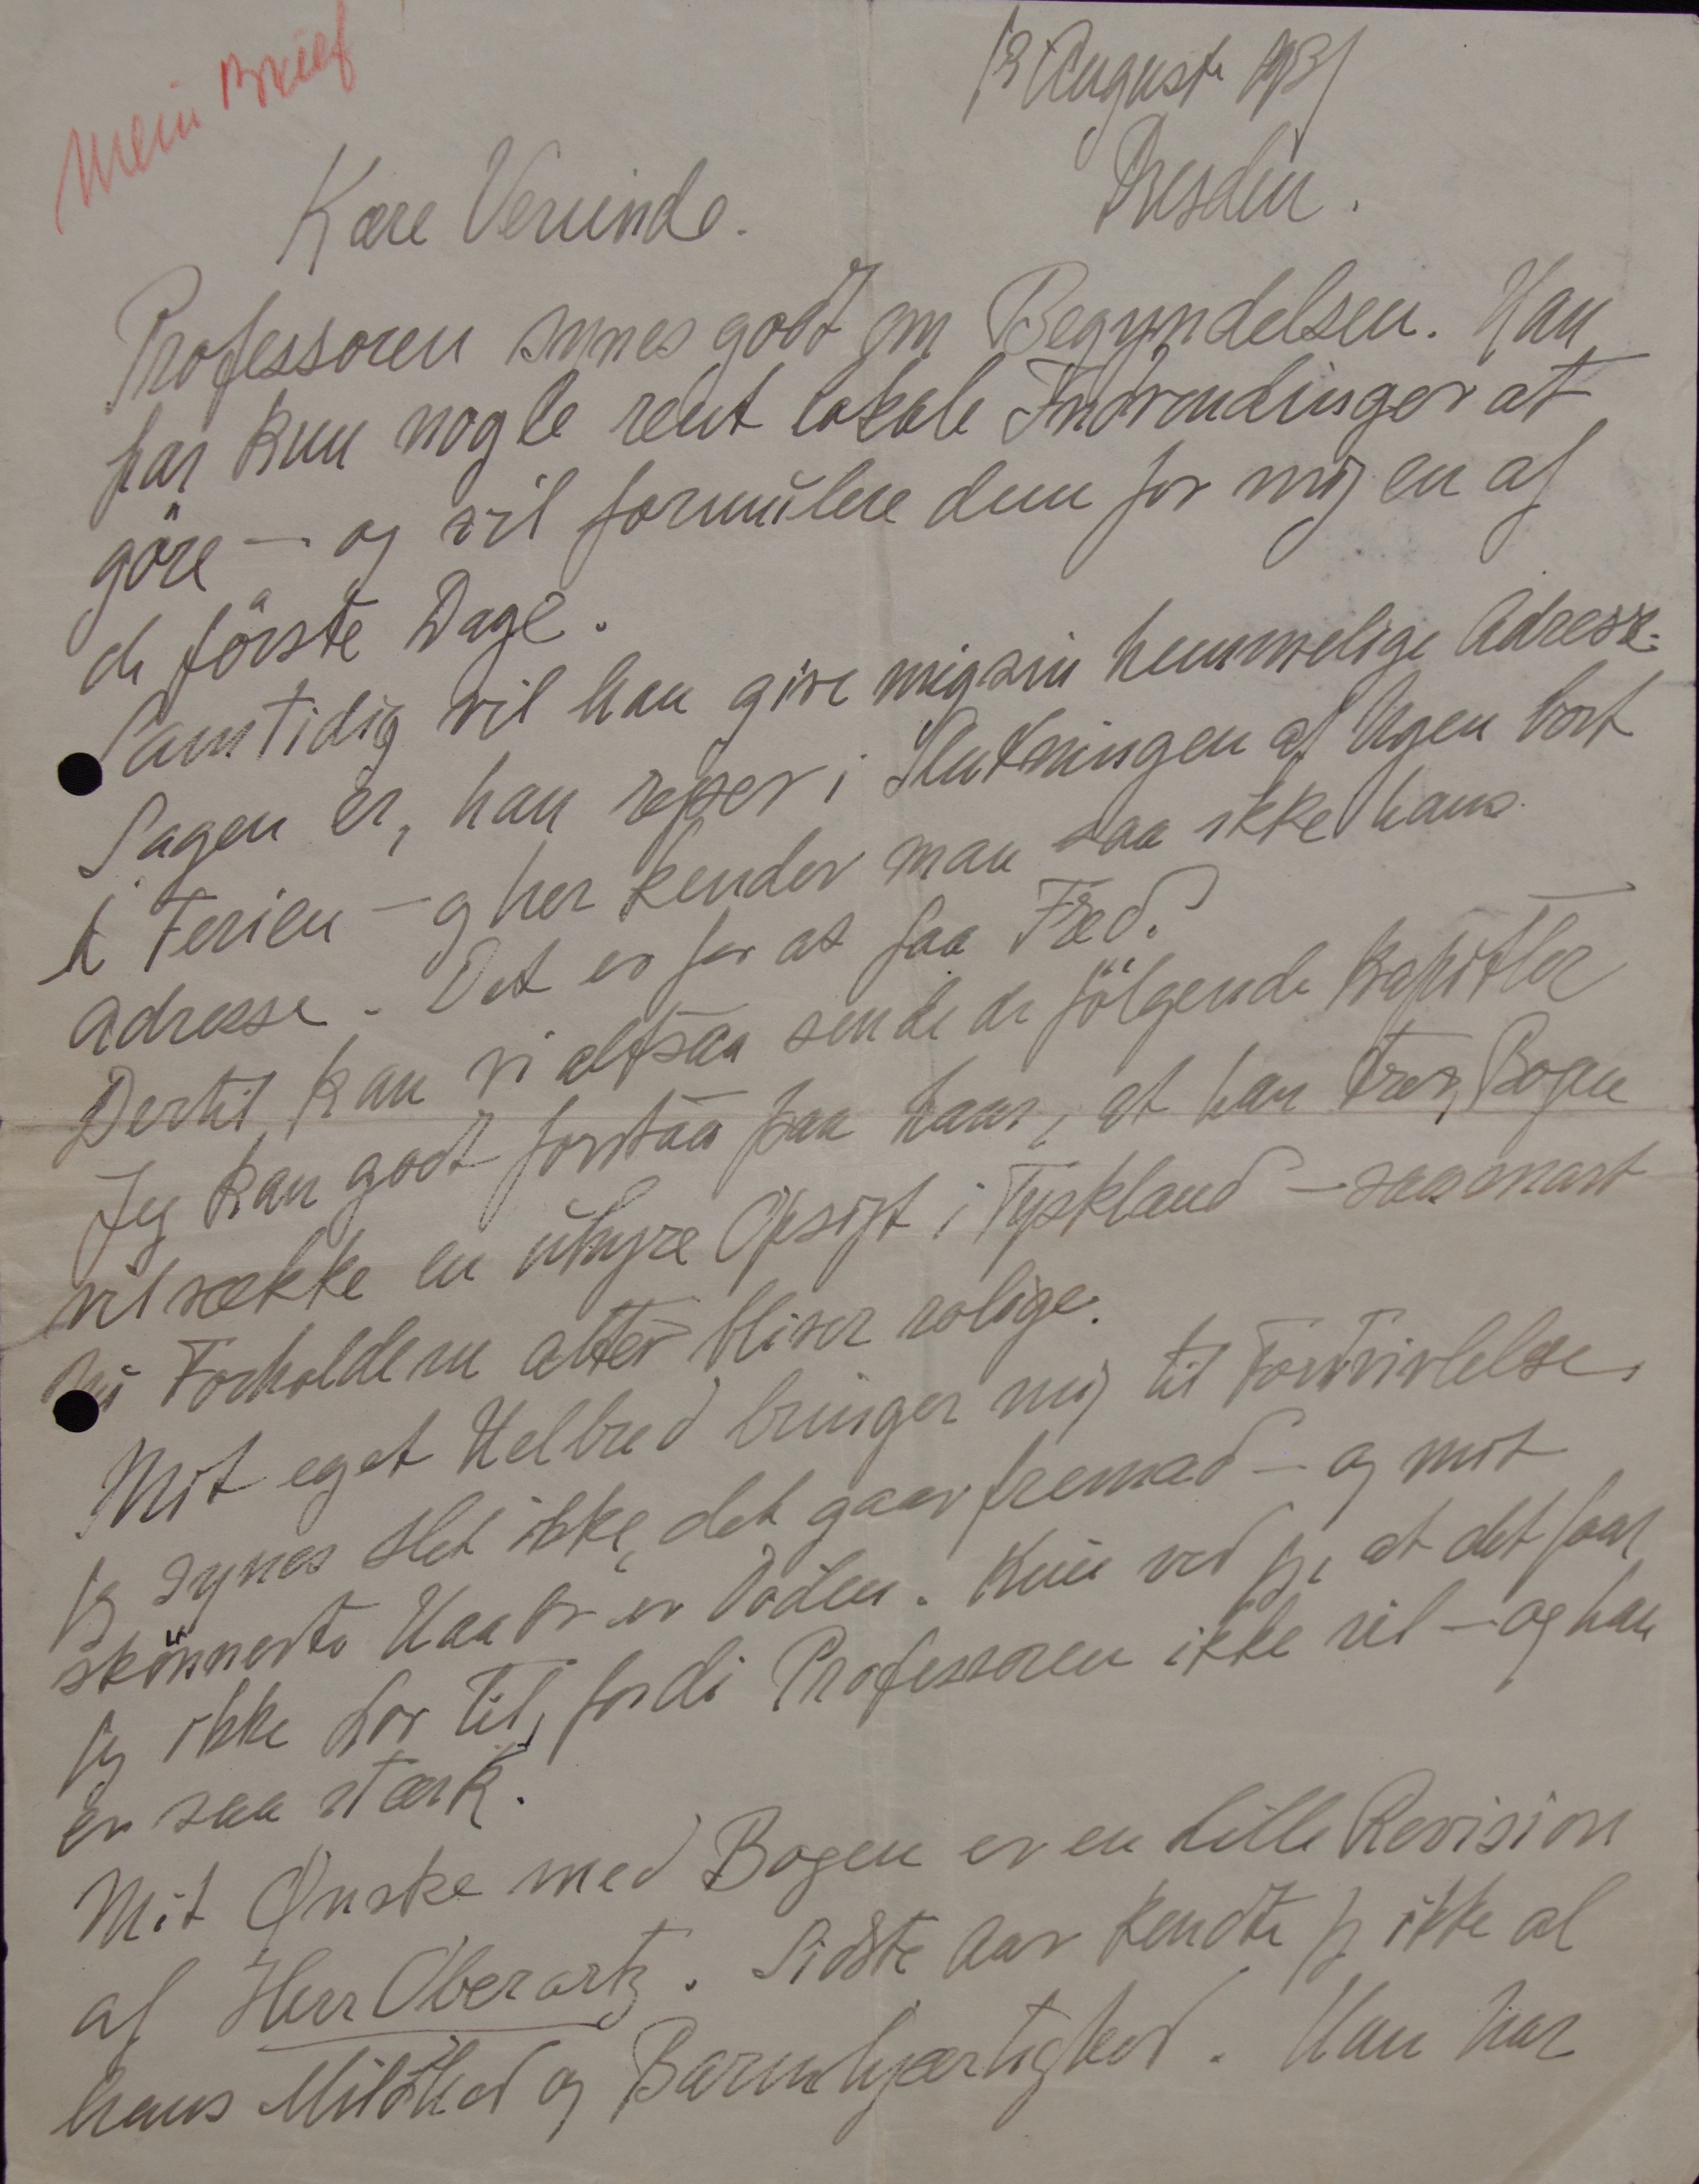 Mein Brief
13 August 1931
Dresden.
Kære Veninde.
Professoren synes godt om Begyndelsen. Han
har kun nogle rent lokale Indvendinger at
göre — og vil formulere dem for mig en af
de förste Dage.
Samtidig vil han give mig sin hemmelige Adresse.
Sagen er, han rejser i Slutningen af Ugen bort
i Ferien — og her kender man saa ikke hans
Adresse. Det er for at faa Fred.
Dertil kan vi altsaa sende de fölgende Kapitler
Jeg kan godt forstaa paa ham, at han tror, Bogen
vil vække en uhyre Opsigt i Tyskland — saasnart
Forholdene atter bliver rolige.
Mit eget Helbred bringer mig til Fortvivlelse,
jeg synes slet ikke, det gaar fremad — og mit
skönneste Haab er Döden. Kun ved jeg, at det faar
jeg ikke Lov til, fordi Professoren ikke vil — og han
er saa stærk.
Mit Ønske med Bogen er en lille Revision
af Herr Oberartz. Sidste Aar kendte jeg ikke al
hans Mildhed og Barmhjærtighed. Han har